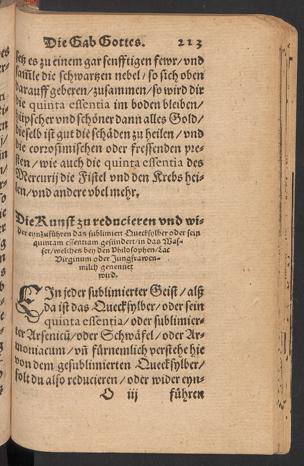 Die Gab Gottes. 213
setz es zu einem gar senfftigen fewr/ vnd
samle die schwartzen nebel/ so sich oben
darauff geberen/ zusammen/ so wird dir
die quinta essentia im boden bleiben/
hüpscher vnd schöner dann alles Gold/
dieselb ist gut die schäden zu heilen/ vnd
die corrosimischen oder fressenden pre-
sten/ wie auch die quinta essentia des
Mercurij die Fistel vnd den Krebs hei-
len/ vnd andere vbel mehr.
Die Kunst zu reducieren vnd wi-
der eynzuführen das sublimiert Quecksylber oder sein
quintam essentiam gesündert/ in das Was-
ser/ welches bey den Philosophen/ Lac
Virginum oder Jungfrawen-
milch genennet
wird.
EIn jeder sublimierter Geist/ alß
da ist das Quecksylber/ oder sein
quinta essentia/ oder sublimier-
ter Arsenicū/ oder Schwäfel/ oder Ar-
moniacum/ vñ fürnemlich verstehe hie
von dem gesublimierten Quecksylber/
solt du also reducieren/ oder wider eyn-
O iij führen